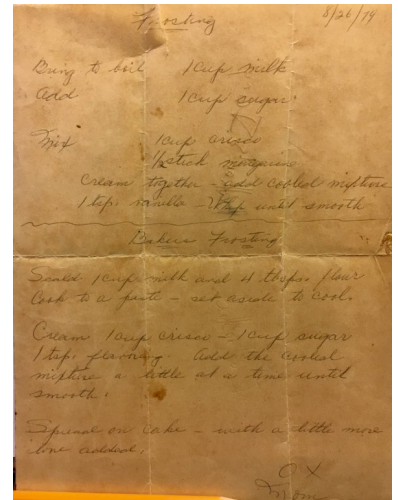 Frosting 8/26/79
Bring to boil 1 cup milk
Add 1 cup sugar
Mix 1 cup crisco
stick margarine
Cream together - add cooled mixture
1 tsp. vanilla - Whip until smooth
Bakers Frosting
Scald 1 cup milk and 4 tbsps flour
Cook to a paste - set aside to cool.
Cream 1 cup crisco - 1 cup sugar
1 tsp. flavoring. Add the cooled
mixture a little at a time until
smooth.
Spread on cake - with a little more
love added.
OX
Mom